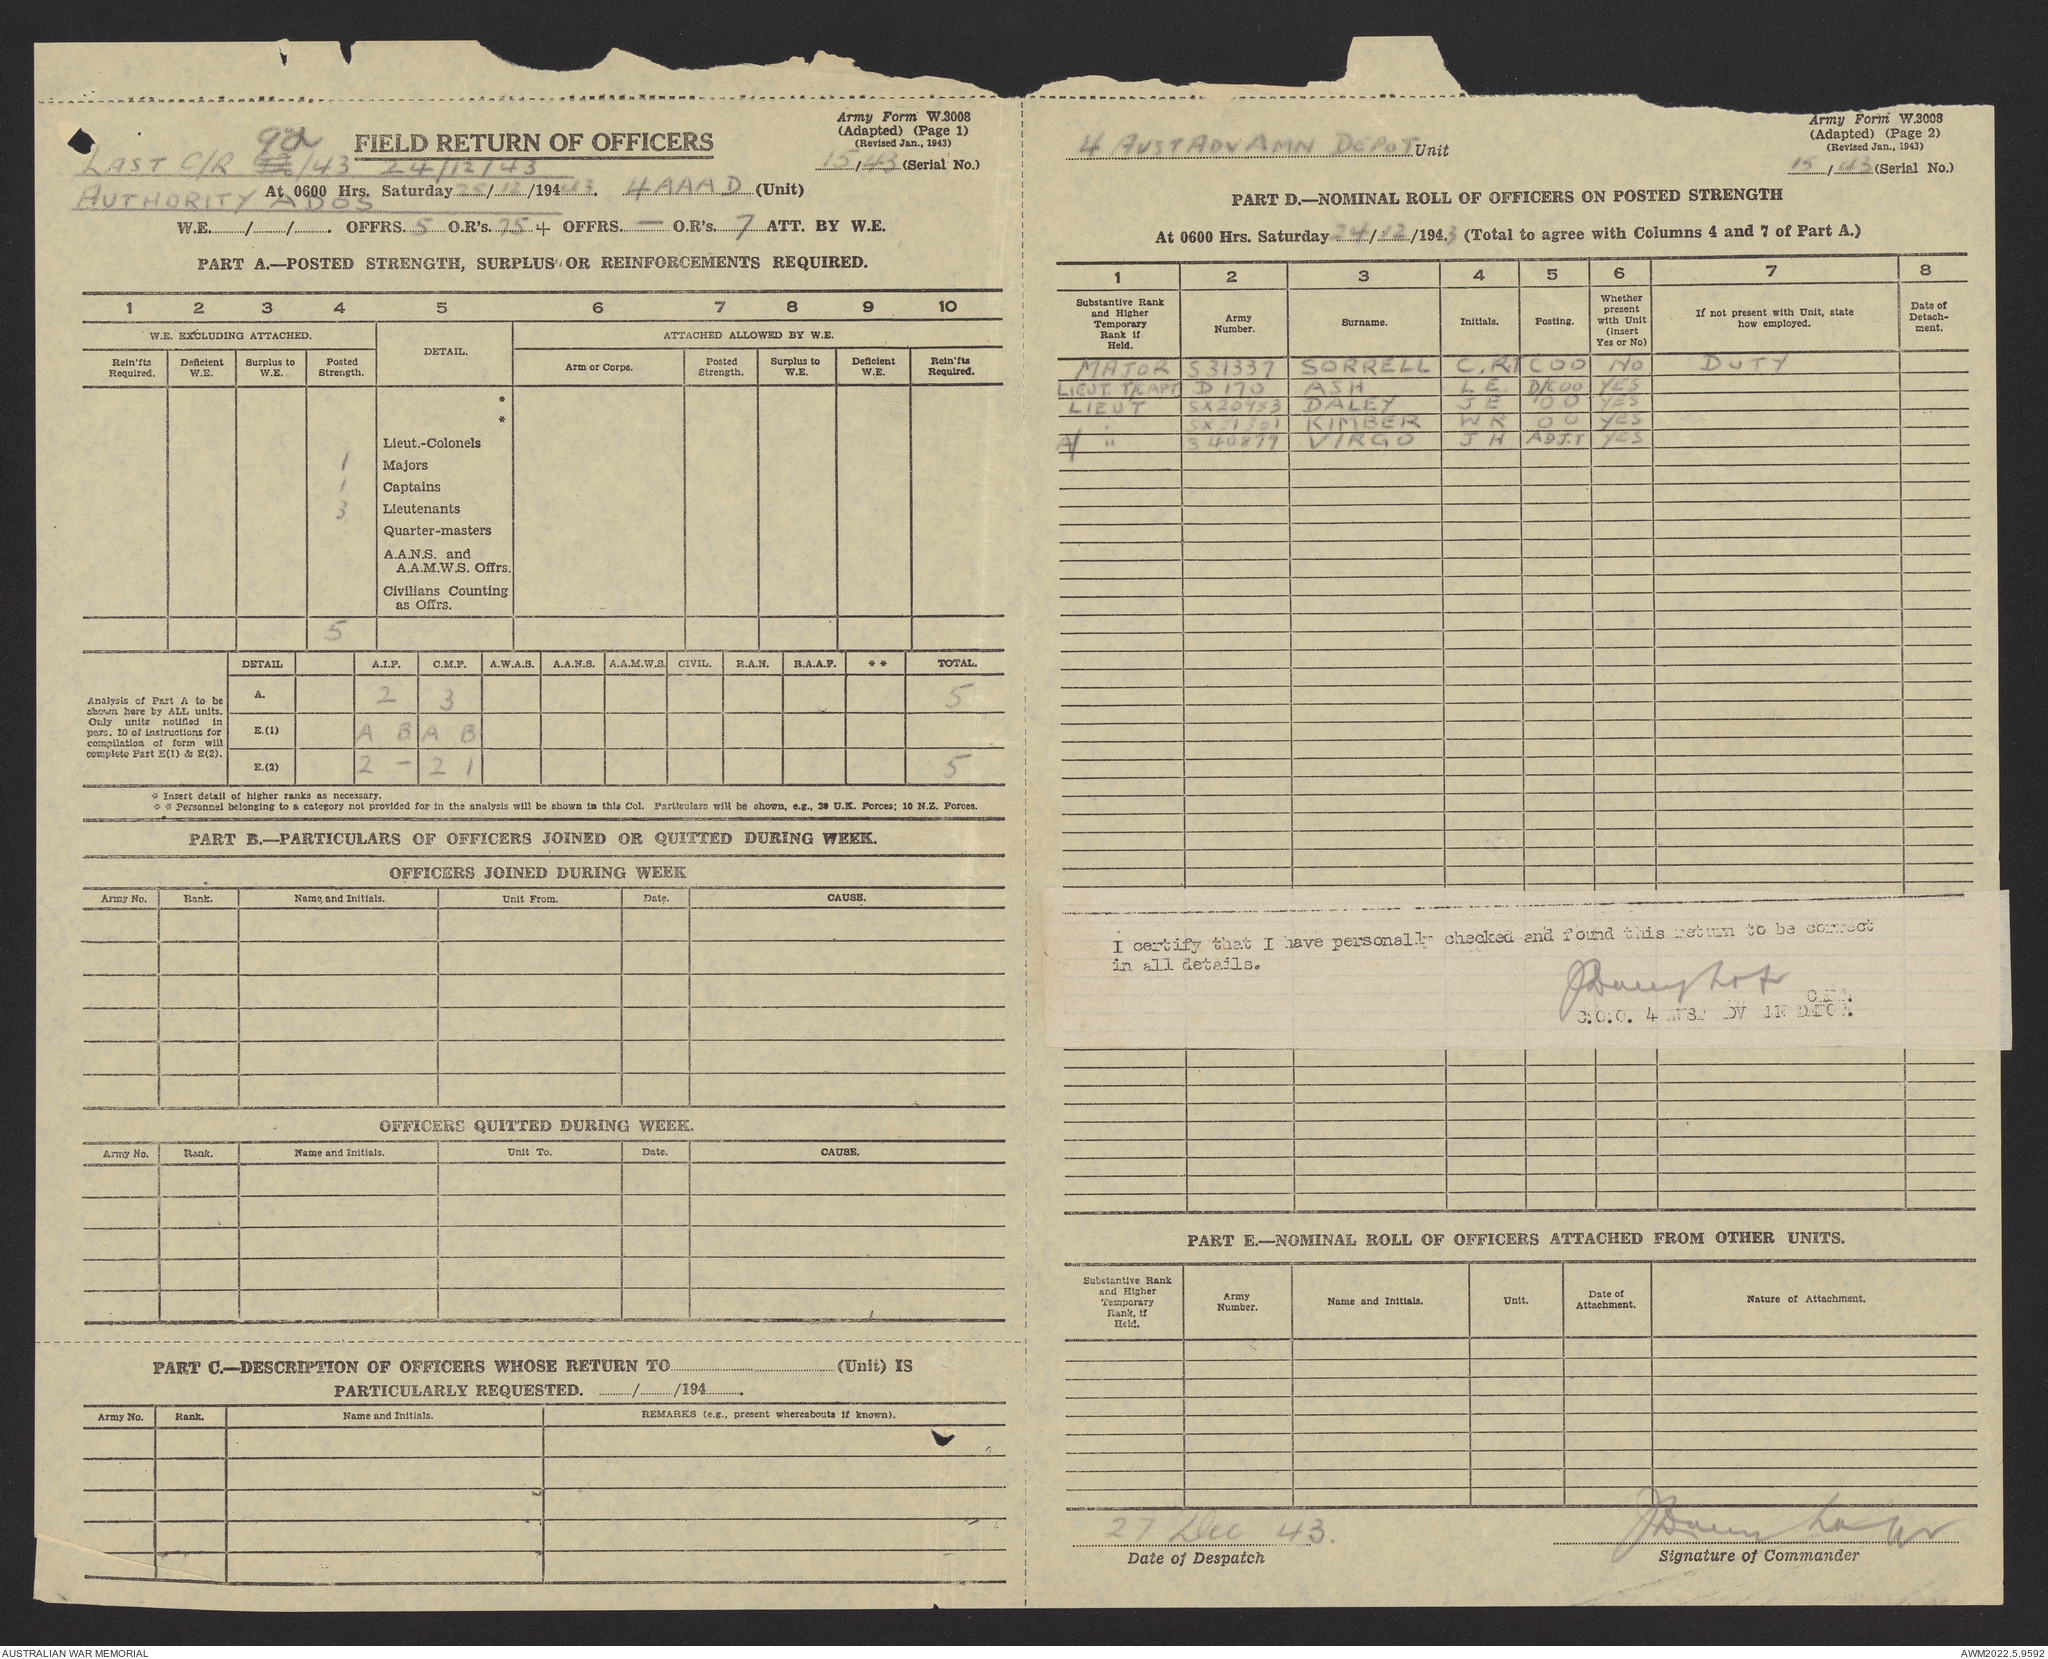 Army Form W.3008
(Adapted) (Page 1)
(Revised Jan., 1943)
15/43 (Serial No.)
92
FIELD RETURN OF OFFICERS
LAST C/R /43 24/12/43
At 0600 Hrs. Saturday 25/12/1943. 4 AAAD (Unit)
AUTHORITY ADOS
W.E. / / . OFFRS. 5 O.R's. 75 + OFFRS. — O.R's. 7 ATT. BY W.E.
PART A.—POSTED STRENGTH, SURPLUS OR REINFORCEMENTS REQUIRED.
1 2 3 4 5 6 7 8 9 10
W.E. EXCLUDING ATTACHED. DETAIL. ATTACHED ALLOWED BY W.E.
Rein'fts Required. Deficient W.E. Surplus to W.E. Posted Strength. Arm or Corps. Posted Strength. Surplus to W.E. Deficient W.E. Rein'fts Required.
*
*
Lieut.-Colonels
1 Majors
1 Captains
3 Lieutenants
Quarter-masters
A.A.N.S. and
A.A.M.W.S. Offrs.
Civilians Counting
as Offrs.
5
DETAIL A.I.F. C.M.F. A.W.A.S. A.A.N.S. A.A.M.W.S. CIVIL. R.A.N. R.A.A.F. * * TOTAL.
Analysis of Part A to be
shown here by ALL units.
Only units notified in
para. 10 of instructions for
compilation of form will
complete Part E(1) & E(2).
A. 2 3 5
E.(1) A B A B
E.(2) 2 – 2 1 5
* Insert detail of higher ranks as necessary.
* * Personnel belonging to a category not provided for in the analysis will be shown in this Col. Particulars will be shown, e.g., 20 U.K. Forces; 10 N.Z. Forces.
PART B.—PARTICULARS OF OFFICERS JOINED OR QUITTED DURING WEEK.
OFFICERS JOINED DURING WEEK
Army No. Rank. Name and Initials. Unit From. Date. CAUSE.
OFFICERS QUITTED DURING WEEK.
Army No. Rank. Name and Initials. Unit To. Date. CAUSE.
PART C.—DESCRIPTION OF OFFICERS WHOSE RETURN TO (Unit) IS
PARTICULARLY REQUESTED. / /194 .
Army No. Rank. Name and Initials. REMARKS (e.g., present whereabouts if known).
Army Form W.3008
(Adapted) (Page 2)
(Revised Jan., 1943)
4 AUST ADV AMN DEPOT Unit
15/43 (Serial No.)
PART D.—NOMINAL ROLL OF OFFICERS ON POSTED STRENGTH
At 0600 Hrs. Saturday 24/12/1943 (Total to agree with Columns 4 and 7 of Part A.)
1 2 3 4 5 6 7 8
Substantive Rank and Higher Temporary Rank if Held. Army Number. Surname. Initials. Posting. Whether present with Unit (insert Yes or No) If not present with Unit, state how employed. Date of Detach-ment.
MAJOR S31337 SORRELL C.R.T COO NO DUTY
LIEUT. T/CAPT D 170 ASH L E. D/COO YES
LIEUT SX20953 DALEY J E OO YES
" SX21301 KIMBER W R OO YES
A/ " S40879 VIRGO J H ADJT YES
I certify that I have personally checked and found this return to be correct
in all details.
C.O.O. 4
PART E.—NOMINAL ROLL OF OFFICERS ATTACHED FROM OTHER UNITS.
Substantive Rank and Higher Temporary Rank, if Held. Army Number. Name and Initials. Unit. Date of Attachment. Nature of Attachment.
27 Dec 43.
Date of Despatch
Signature of Commander
AUSTRALIAN WAR MEMORIAL
AWM2022.5.9592